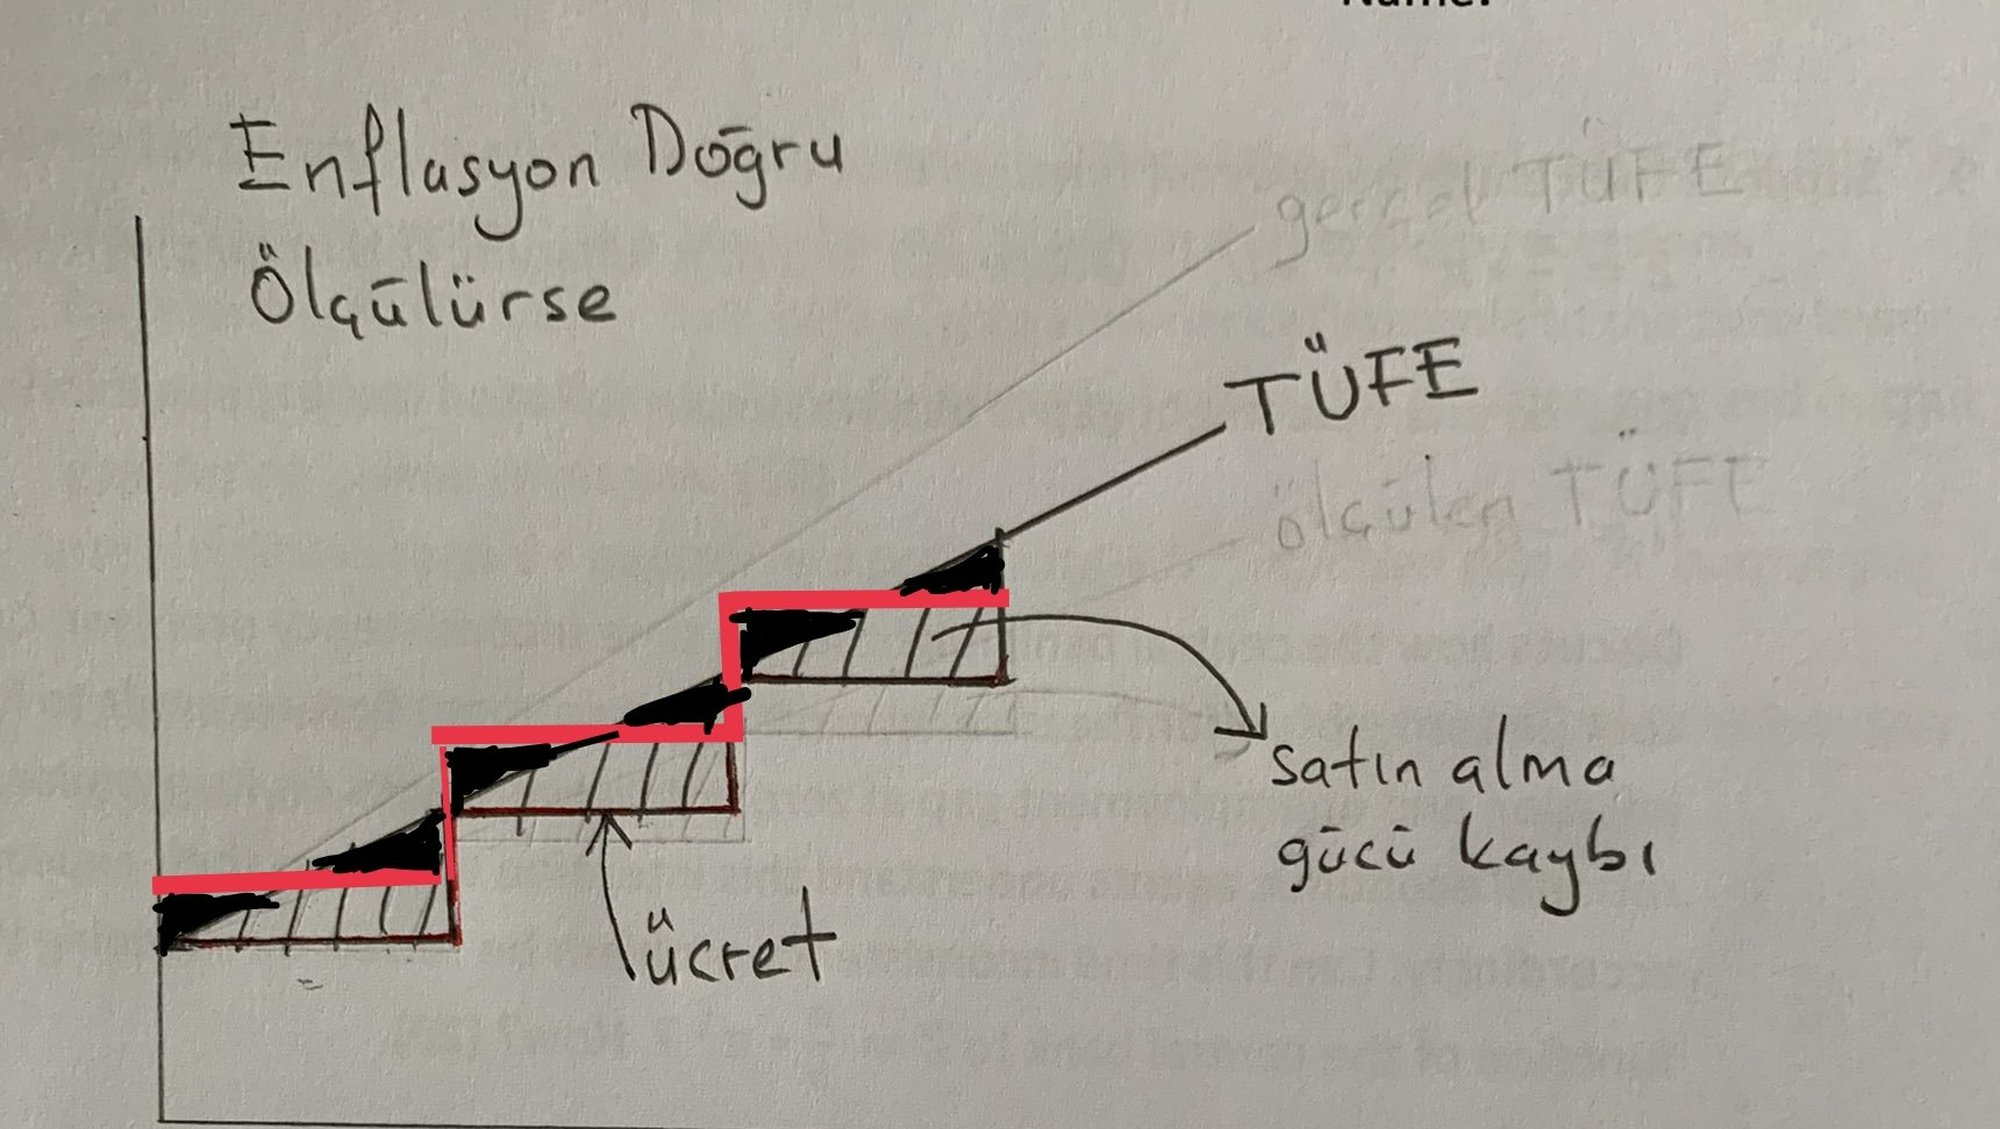 Name:
Enflasyon Doğru
Ölçülürse
gerçek TÜFE
TÜFE
ölçülen TÜFE
satın alma
gücü kaybı
ücret